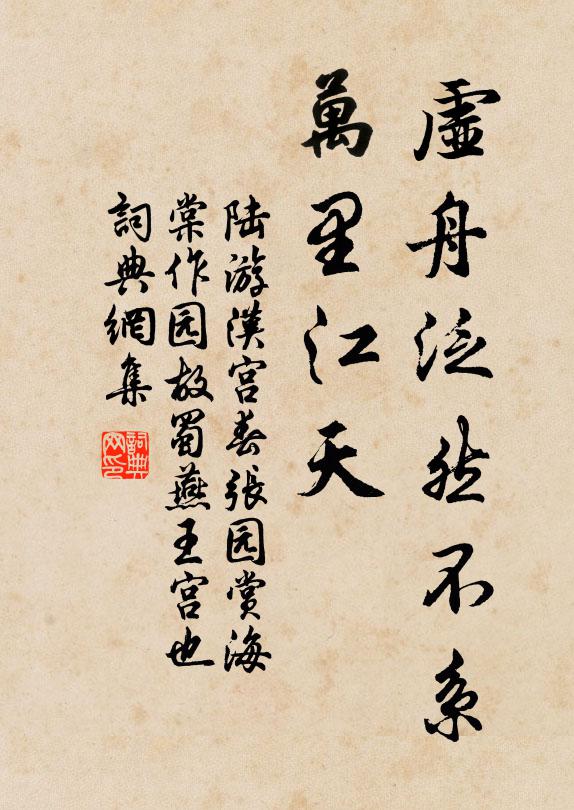 虛舟泛然不系
萬里江天
陆游漢宮春張园賞海
棠作园故蜀燕王宮也
詞典網集
詞典网印